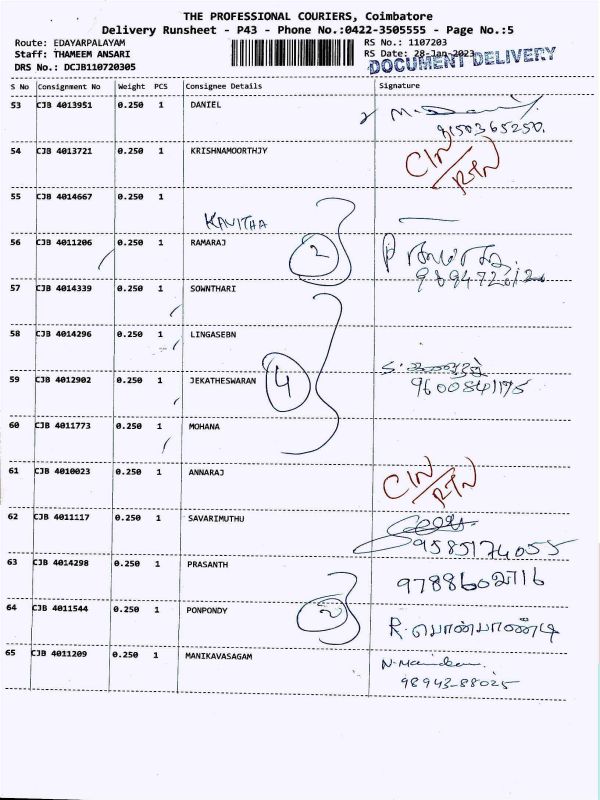 THE PROFESSIONAL COURIERS, Coimbatore
Delivery Runsheet - P43 - Phone No.:0422-3505555 - Page No.:5
Route: EDAYARPALAYAM RS No.: 1107203
Staff: THAMEEM ANSARI RS Date: 28-Jan-2023
DRS No.: DCJB110720305 DOCUMENT DELIVERY
S No Consignment No Weight PCS Consignee Details Signature
53 CJB 4013951 0.250 1 DANIEL
9150365250.
54 CJB 4013721 0.250 1 KRISHNAMOORTHJY CIN/RTN
55 CJB 4014667 0.250 1
KAVITHA
56 CJB 4011206 0.250 1 RAMARAJ 2
57 CJB 4014339 0.250 1 SOWNTHARI
58 CJB 4014296 0.250 1 LINGASEBN
59 CJB 4012902 0.250 1 JEKATHESWARAN 4 9600841175
60 CJB 4011773 0.250 1 MOHANA
61 CJB 4010023 0.250 1 ANNARAJ CIN/RTN
62 CJB 4011117 0.250 1 SAVARIMUTHU
9585174055
63 CJB 4014298 0.250 1 PRASANTH 9788602716
64 CJB 4011544 0.250 1 PONPONDY 2 R. பொன்பாண்டி
65 CJB 4011209 0.250 1 MANIKAVASAGAM
98943-88025